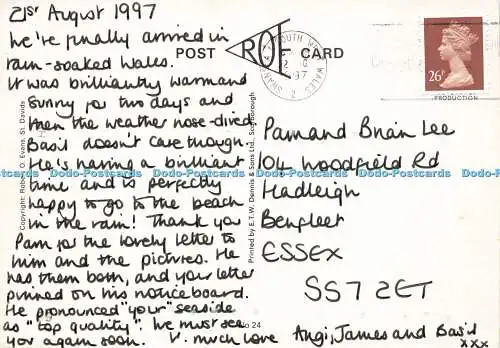 21st August 1997
We're finally arrived in
rain-soaked Wales.
It was brilliantly warm and
sunny for two days and
then the weather nose-dived.
Basil doesn't care though
He's having a brilliant
time and is perfectly
happy to go to the beach
in the rain! Thank you
Pam for the lovely letter to
him and the pictures. He
has them both, and your letter
pinned on his noticeboard.
He pronounced "your" seaside
as "top quality". We must see
you again soon. V. much love
Angi, James and Basil
xxx
POST
ROE
CARD
SOUTH WALES 2
97
26P
PRODUCTION
Pam and Brian Lee
104 Woodfield Rd
Hadleigh
Benfleet
ESSEX
SS7 2ET
Copyright: Robert O. Evans, St. Davids
Printed by E.T.W. Dennis & Sons Ltd., Scarborough
No 24
Dodo-Postcards Dodo-Postcards Dodo-Postcards Dodo-Postcards Dodo-Postcards